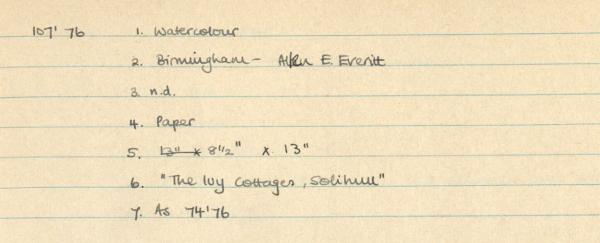 107' 76 1. Watercolour
2. Birmingham - Allen E. Everitt
3. n.d.
4. Paper
5. 13" x 8 1/2" x 13"
6. "The Ivy Cottages, Solihull"
7. As 74'76